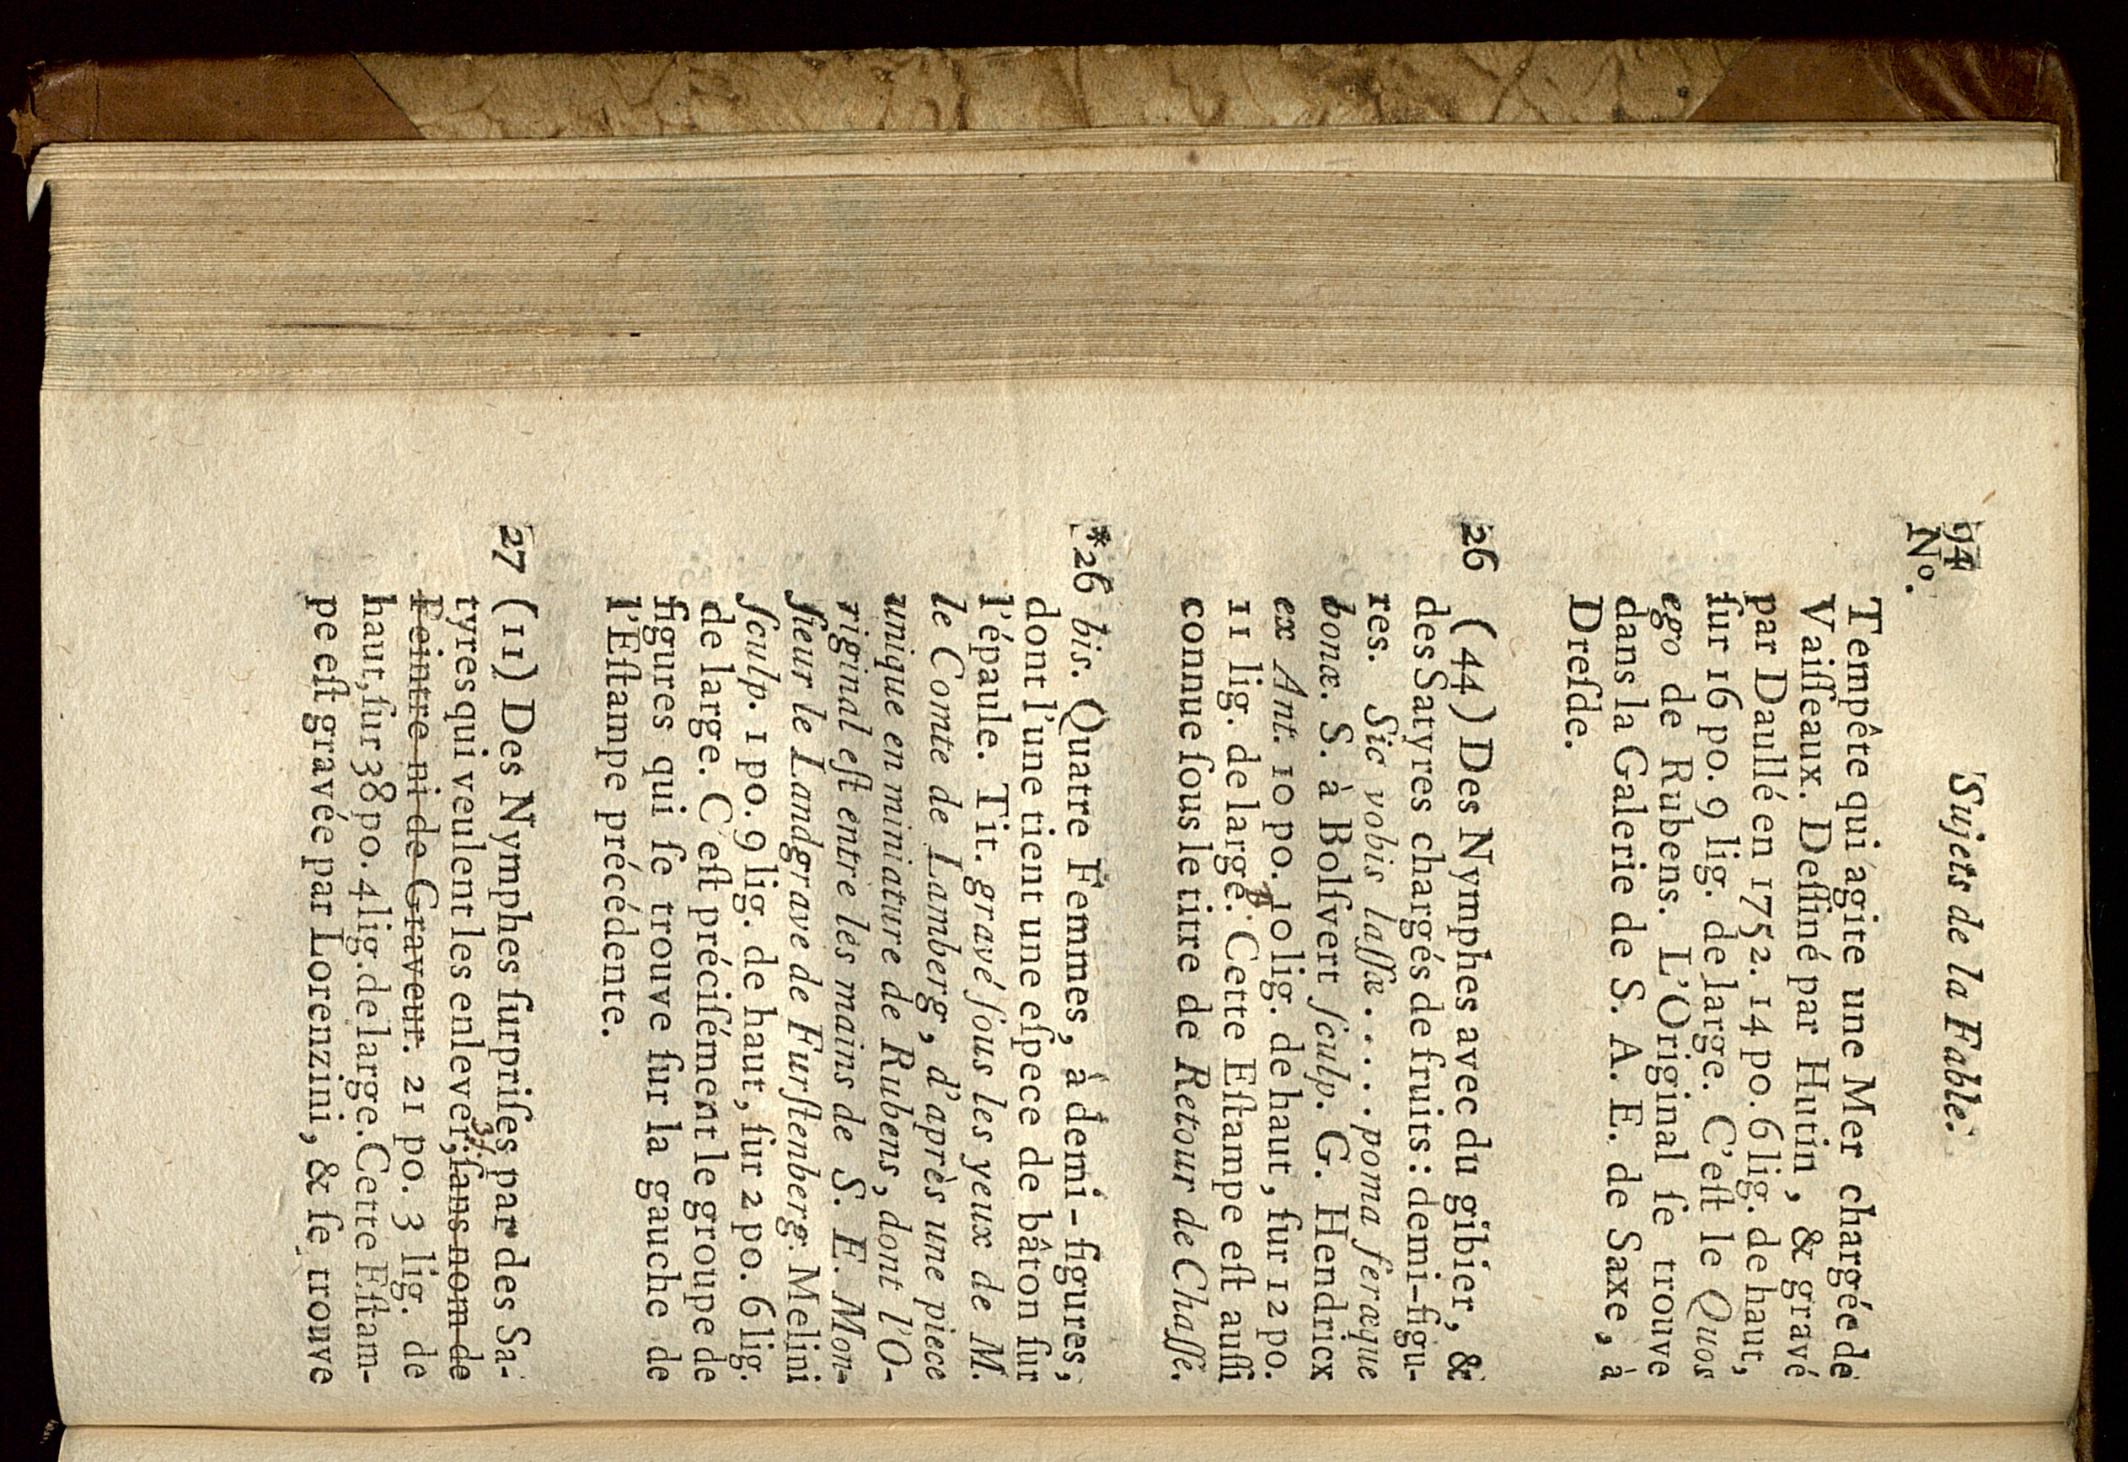 94 Sujets de la Fable.
N°.
Tempête qui agite une Mer chargée de
Vaiſſeaux. Deſſiné par Hutin, & gravé
par Daullé en 1752. 14 po. 6 lig. de haut,
ſur 16 po. 9 lig. de large. C'eſt le Quos
ego de Rubens. L'Original ſe trouve
dans la Galerie de S. A. E. de Saxe, à
Dreſde.
26 (44) Des Nymphes avec du gibier, &
des Satyres chargés de fruits : demi-figu-
res. Sic vobis laſſæ . . . . . poma feræque
bonæ. S. à Bolſvert ſculp. G. Hendricx
ex Ant. 10 po. 10 lig. de haut, ſur 12 po.
11 lig. de large. Cette Eſtampe eſt auſſi
connue ſous le titre de Retour de Chaſſe.
*26 bis. Quatre Femmes, à demi-figures,
dont l'une tient une eſpece de bâton ſur
l'épaule. Tit. gravé ſous les yeux de M.
le Comte de Lamberg, d'après une piece
unique en miniature de Rubens, dont l'O-
riginal eſt entre les mains de S. E. Mon-
ſieur le Landgrave de Furſtenberg. Melini
ſculp. 1 po. 9 lig. de haut, ſur 2 po. 6 lig.
de large. C'eſt préciſément le groupe de
figures qui ſe trouve ſur la gauche de
l'Eſtampe précédente.
27 (11) Des Nymphes ſurpriſes par des Sa-
tyres qui veulent les enlever, ſans nom de
Peintre ni de Graveur. 21 po. 3 lig. de
haut, ſur 38 po. 4 lig. de large. Cette Eſtam-
pe eſt gravée par Lorenzini, & ſe trouve